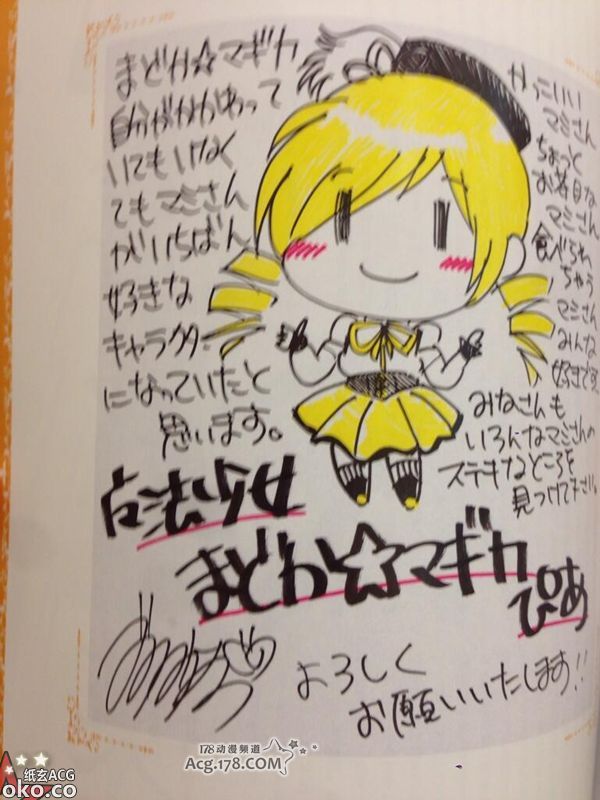 まどか☆マギカ
自分がかかわって
いてもいけなく
てもマミさん
がいちばん
好きな
キャラクター
になっていたと
思います。
かっこいい
マミさん
ちょっと
お茶目な
マミさん
食べられ
ちゃう
マミさん
みんな
好きです
みなさんも
いろんなマミさんの
ステキなところを
見つけて下さい。
魔法少女
まどか☆マギカ
ぴあ
よろしく
お願いいたします!!
178动漫频道
Acg.178.COM
纸玄ACG
oko.co